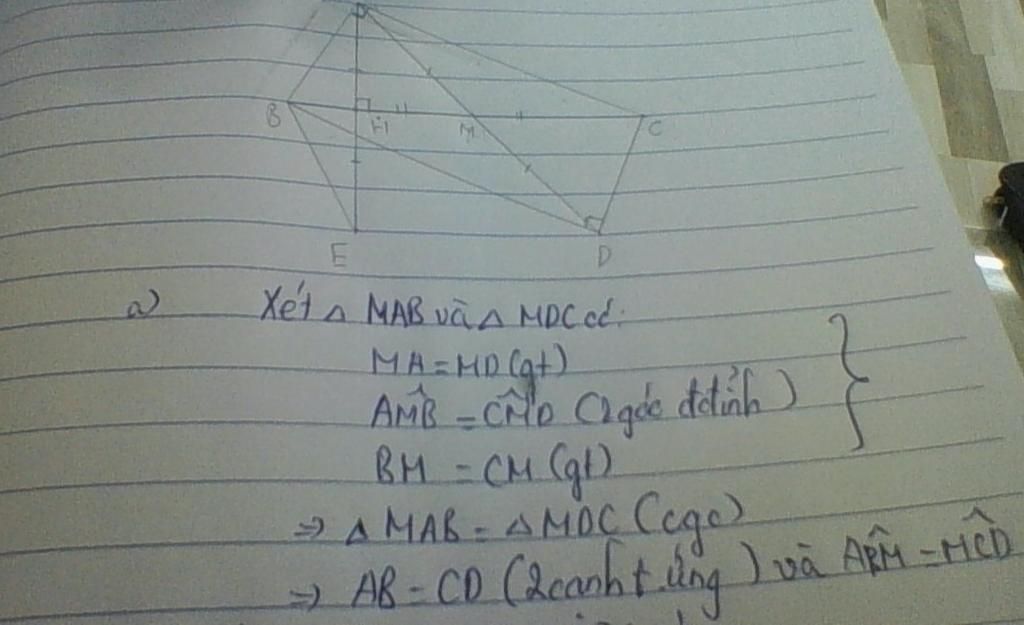 B
H
M
C
E
D
a) Xét △ MAB và △ MDC có:
MA = MD (gt)
AM̂B = CM̂D (2 góc đđỉnh)
BM = CM (gt)
=> △ MAB = △ MDC (cgc)
=> AB = CD (2 cạnh t.ứng) và AB̂M = MĈD